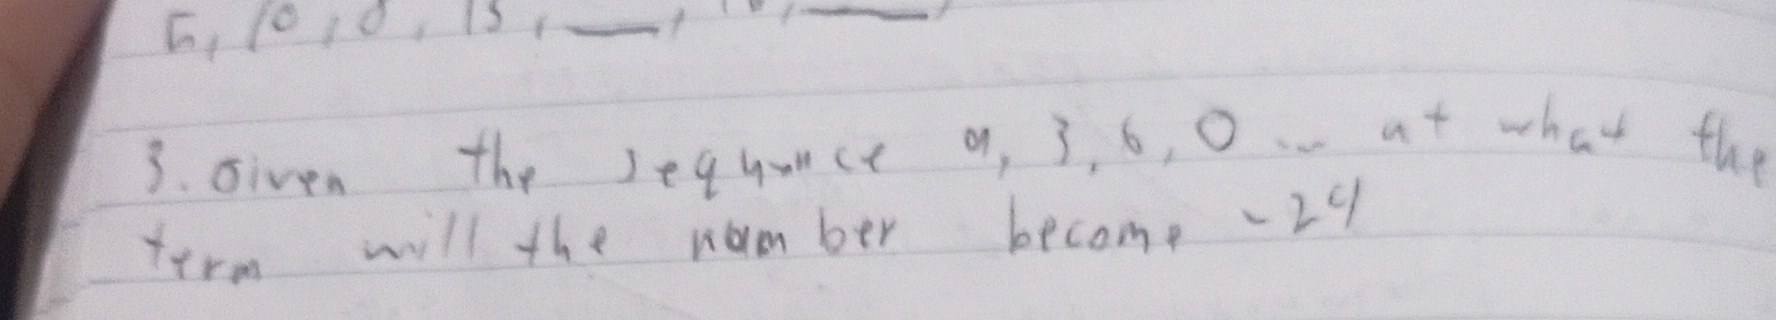 5, 10, 8, 13, __, __,
3. Given the sequence 9, 3, 6, 0 ... at what the
term will the number become -24